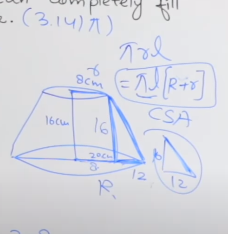 completely fill
(3.14)π)
πrl
= πl[R+r]
CSA
r
8cm
16cm
16
20cm
8
12
R
12